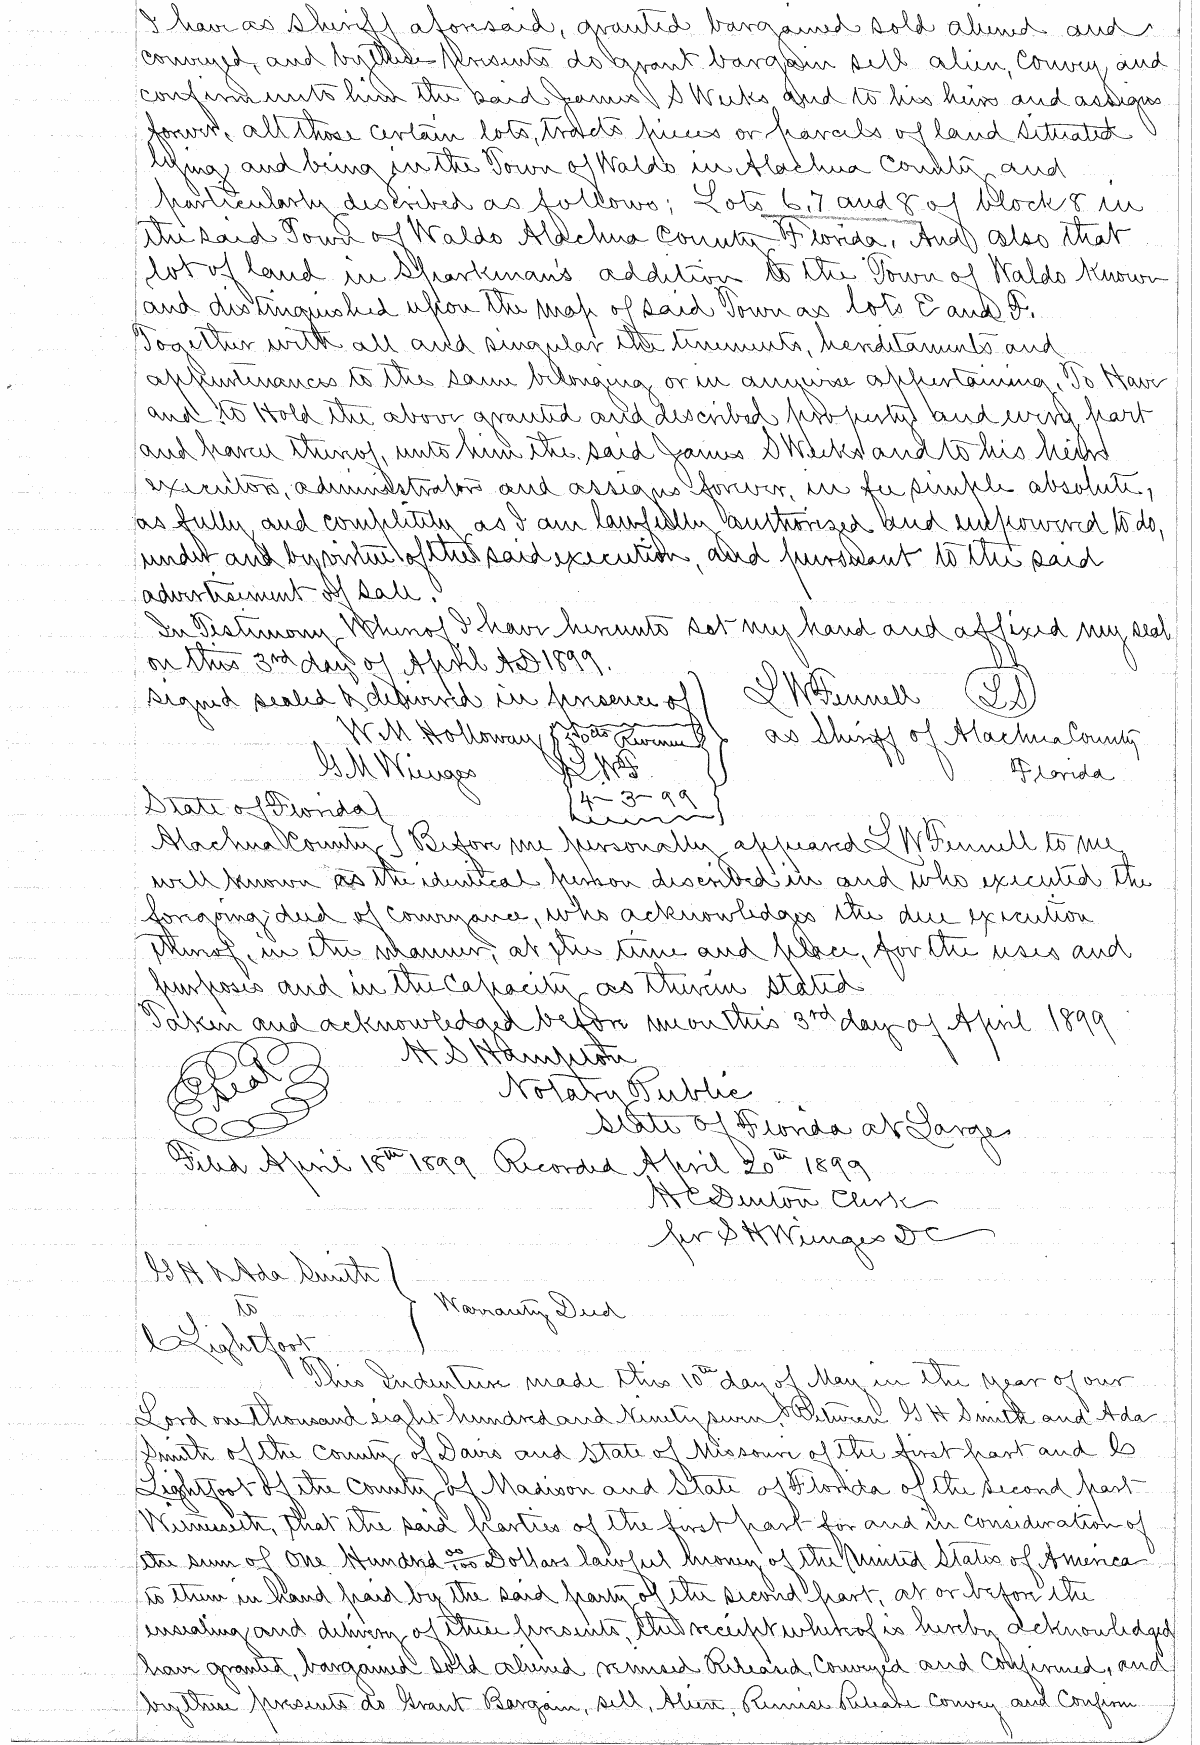 I have as Sheriff aforesaid, granted bargained sold aliened and
conveyed, and by these Presents do grant bargain sell alien, Convey and
confirm unto him the said James S Weeks and to his heirs and assigns
forever, all those certain lots, tracts pieces or parcels of land situated
lying and being in the Town of Waldo in Alachua County and
particularly described as follows; Lots 6, 7 and 8 of block 8 in
the said Town of Waldo Alachua County Florida, And also that
lot of land in Sparkman's addition to the Town of Waldo Known
and distinguished upon the map of said Town as lots E and F.
Together with all and singular the tenements, hereditaments and
appurtenances to the same belonging or in anywise appertaining, To Have
and to Hold the above granted and described property and every part
and parcel thereof, unto him the said James S Weeks and to his heirs
executors, administrators and assigns forever, in fee simple absolute,
as fully and completely as I am lawfully authorized and empowered to do,
under and by virtue of the said execution, and pursuant to the said
advertisement of sale.
In Testimony Whereof I have hereunto set my hand and affixed my seal
on this 3rd day of April AD 1899.
signed sealed & delivered in presence of L W Fennell LS
W. M Holloway Revenue as Sheriff of Alachua County
G M Wienges L W F. Florida
State of Florida 4-3-99
Alachua County Before me personally appeared L W Fennell to me
well known as the identical person described in and who executed the
foregoing deed of conveyance, who acknowledges the due execution
thereof, in the manner, at the time and place, for the uses and
purposes and in the Capacity as therein stated
Taken and acknowledged before me on this 3rd day of April 1899
H S Hampton
Seal Notary Public
State of Florida at Large
Filed April 18th 1899 Recorded April 20th 1899
H C Denton Clerk
per S H Wienges DC
G H & Ada Smith
to
Warranty Deed
C Lightfoot
This Indenture made this 10th day of May in the year of our
Lord one thousand eight hundred and Ninety seven, Between G H Smith and Ada
Smith of the County of Davis and State of Missouri of the first part and C
Lightfoot of the County of Madison and State of Florida of the second part
Witnesseth, that the said parties of the first part for and in consideration of
the sum of One Hundred 00/100 Dollars lawful money of the United States of America
to them in hand paid by the said party of the second part, at or before the
ensealing and delivery of these presents, the receipt whereof is hereby acknowledged
have granted, bargained sold aliened remised Released, Conveyed and Confirmed, and
by these presents do Grant Bargain, sell, Alien, Remise Release Convey and Confirm